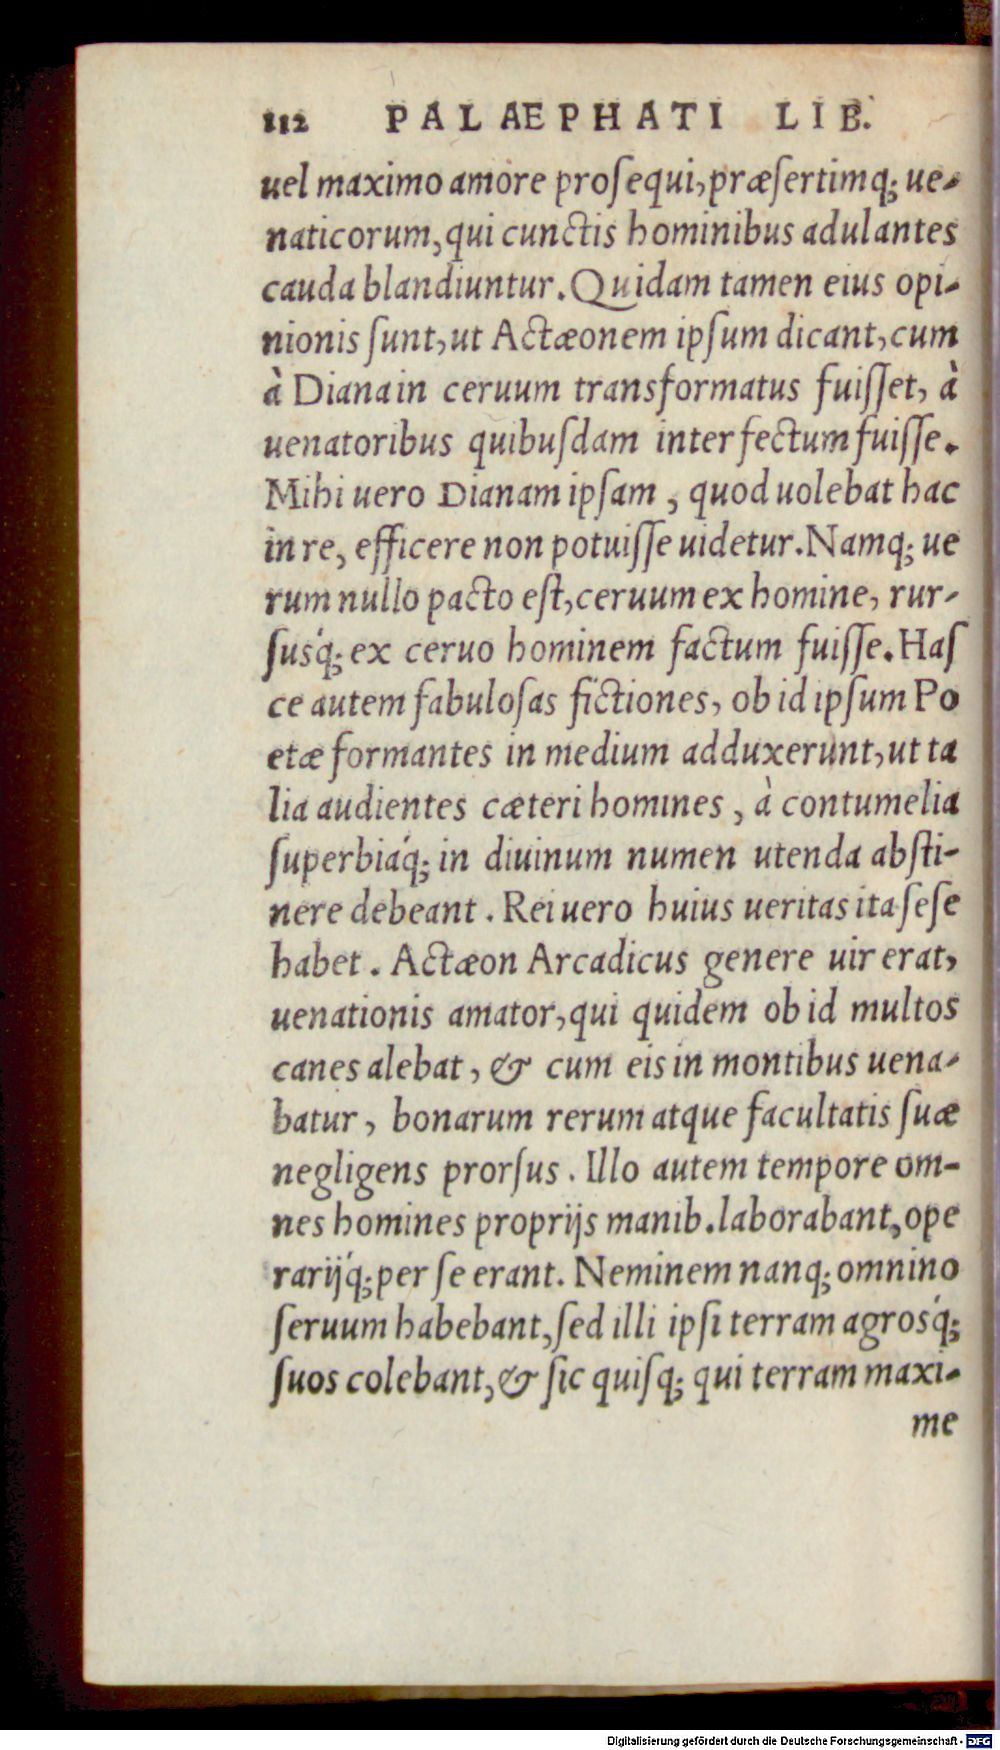 112 PALAEPHATI LIB.
uel maximo amore proſequi, præſertimq; ue-
naticorum, qui cunctis hominibus adulantes
cauda blandiuntur. Quidam tamen eius opi-
nionis ſunt, ut Actæonem ipſum dicant, cum
à Diana in ceruum transformatus fuiſſet, à
uenatoribus quibuſdam interfectum fuiſſe.
Mihi uero Dianam ipſam, quod uolebat hac
in re, efficere non potuiſſe uidetur. Namq; ue
rum nullo pacto eſt, ceruum ex homine, rur-
ſusq́; ex ceruo hominem factum fuiſſe. Haſ
ce autem fabuloſas fictiones, ob id ipſum Po
etæ formantes in medium adduxerunt, ut ta
lia audientes cæteri homines, à contumelia
ſuperbiaq́; in diuinum numen utenda abſti-
nere debeant. Rei uero huius ueritas ita ſeſe
habet. Actæon Arcadicus genere uir erat,
uenationis amator, qui quidem ob id multos
canes alebat, & cum eis in montibus uena-
batur, bonarum rerum atque facultatis ſuæ
negligens prorſus. Illo autem tempore om-
nes homines proprijs manib. laborabant, ope
rarijq́; per ſe erant. Neminem nanq; omnino
ſeruum habebant, ſed illi ipſi terram agrosq́;
ſuos colebant, & ſic quiſq; qui terram maxi-
me
Digitalisierung gefördert durch die Deutsche Forschungsgemeinschaft - DFG